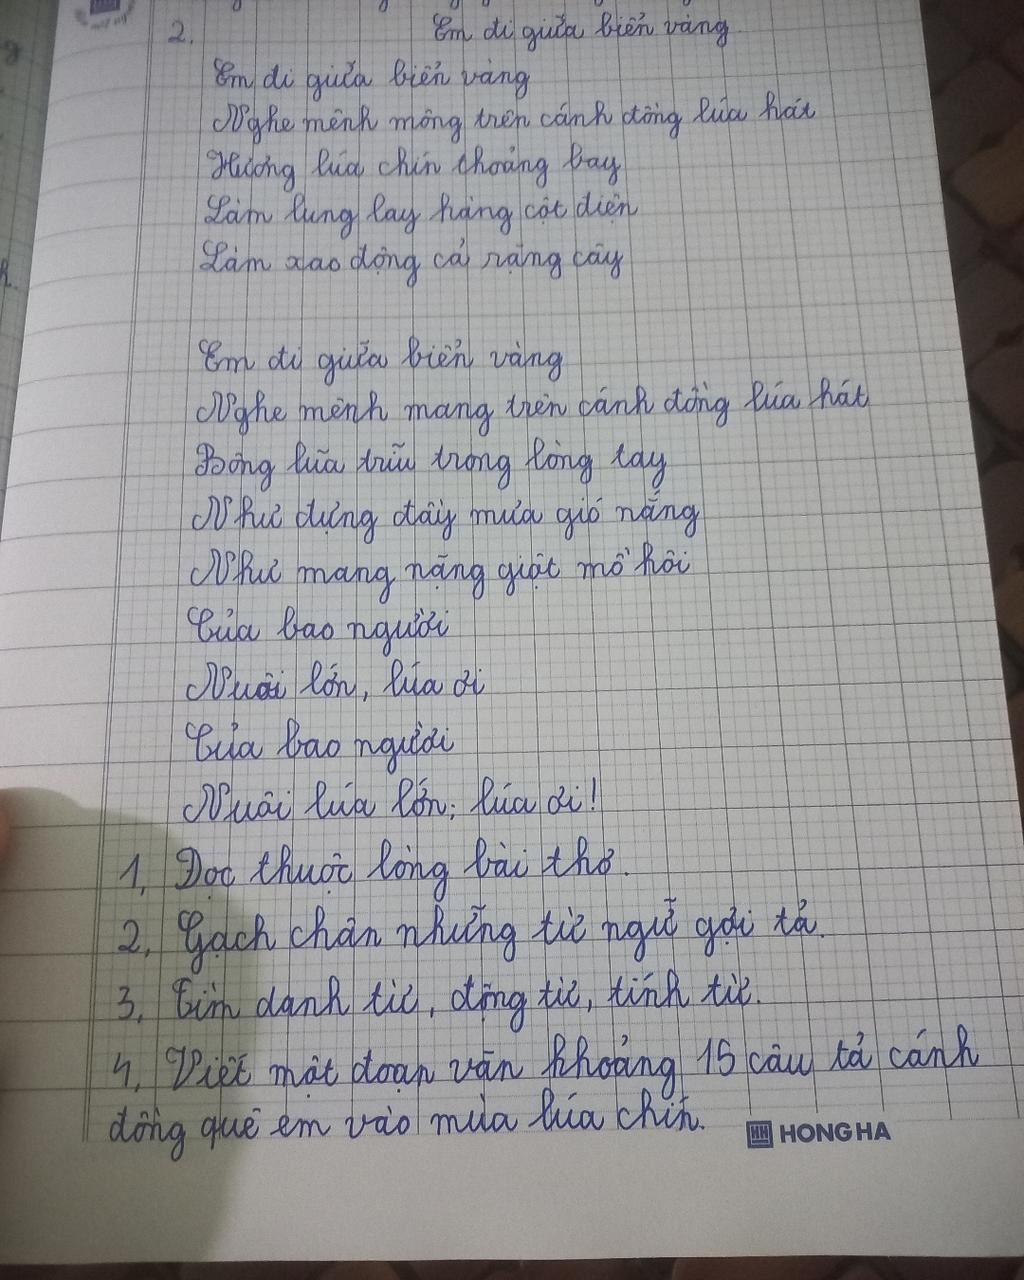 2. Em đi giữa biển vàng
Em đi giữa biển vàng
Nghe mênh mông trên cánh đồng lúa hát
Hương lúa chín thoảng bay
Làm lung lay hàng cột điện
Làm xao động cả rặng cây
Em đi giữa biển vàng
Nghe mênh mang trên cánh đồng lúa hát
Bông lúa trĩu trong lòng tay
Như đựng đầy mưa gió nắng
Như mang nặng giọt mồ hôi
Của bao người
Nuôi lớn, lúa ơi
Của bao người
Nuôi lúa lớn, lúa ơi!
1, Đọc thuộc lòng bài thơ.
2, Gạch chân những từ ngữ gợi tả.
3, Tìm danh từ, động từ, tính từ.
4, Viết một đoạn văn khoảng 15 câu tả cánh
đồng quê em vào mùa lúa chín.
HH HONG HA